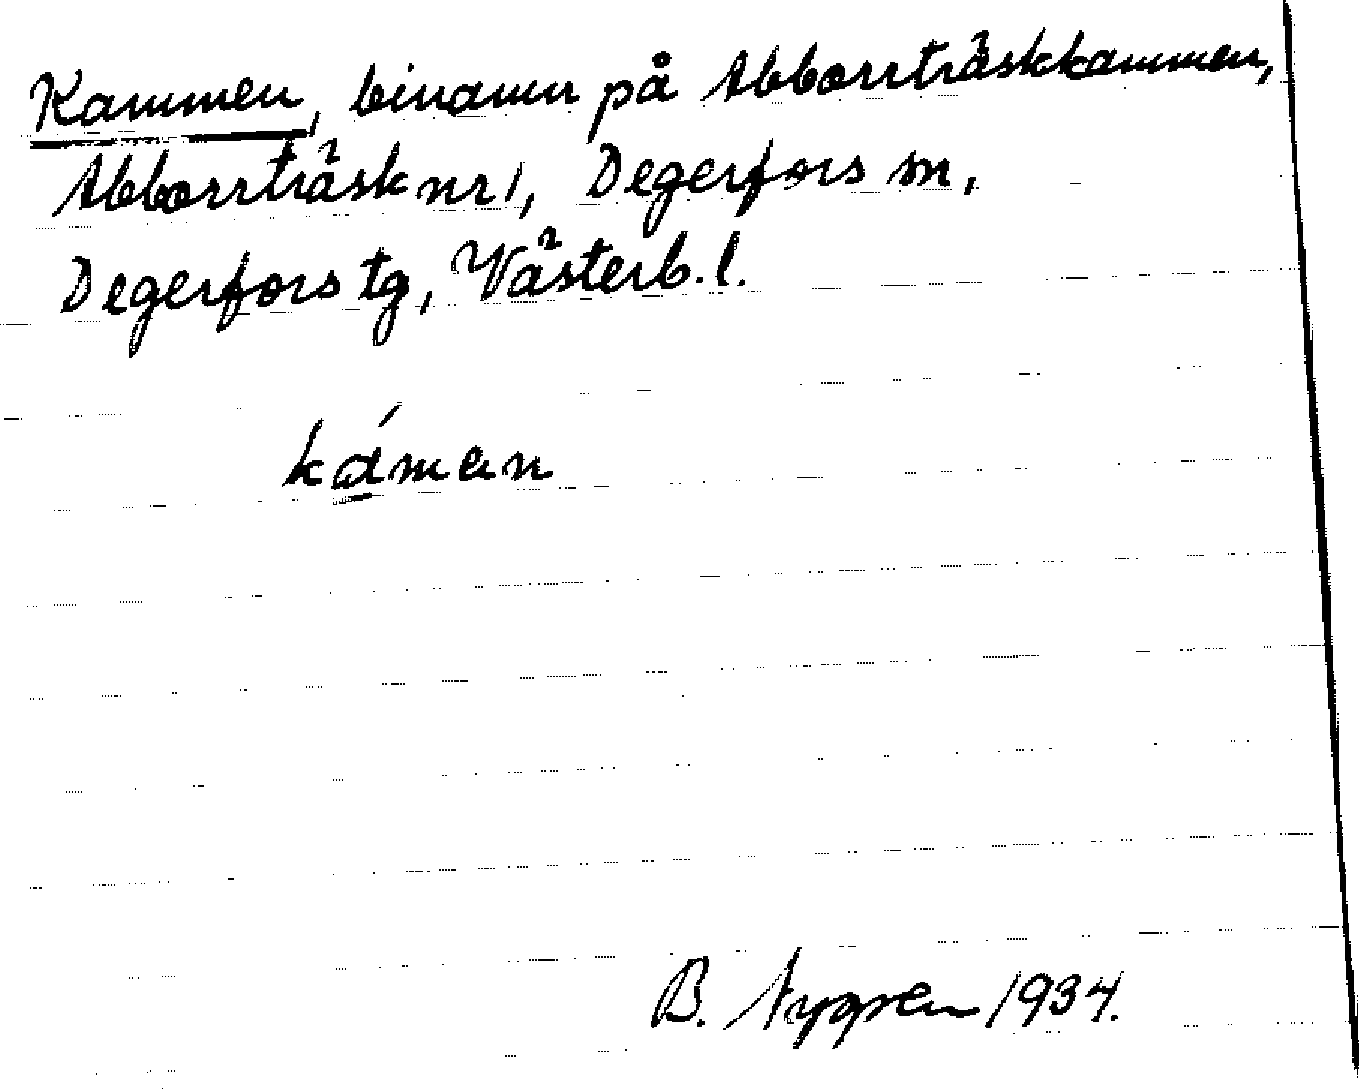 Kammen, binamn på Abborrträskkammen,
Abborrträsk nr 1, Degerfors sn,
Degerfors tg, Västerb. l.
káman
B. Nygren 1934.